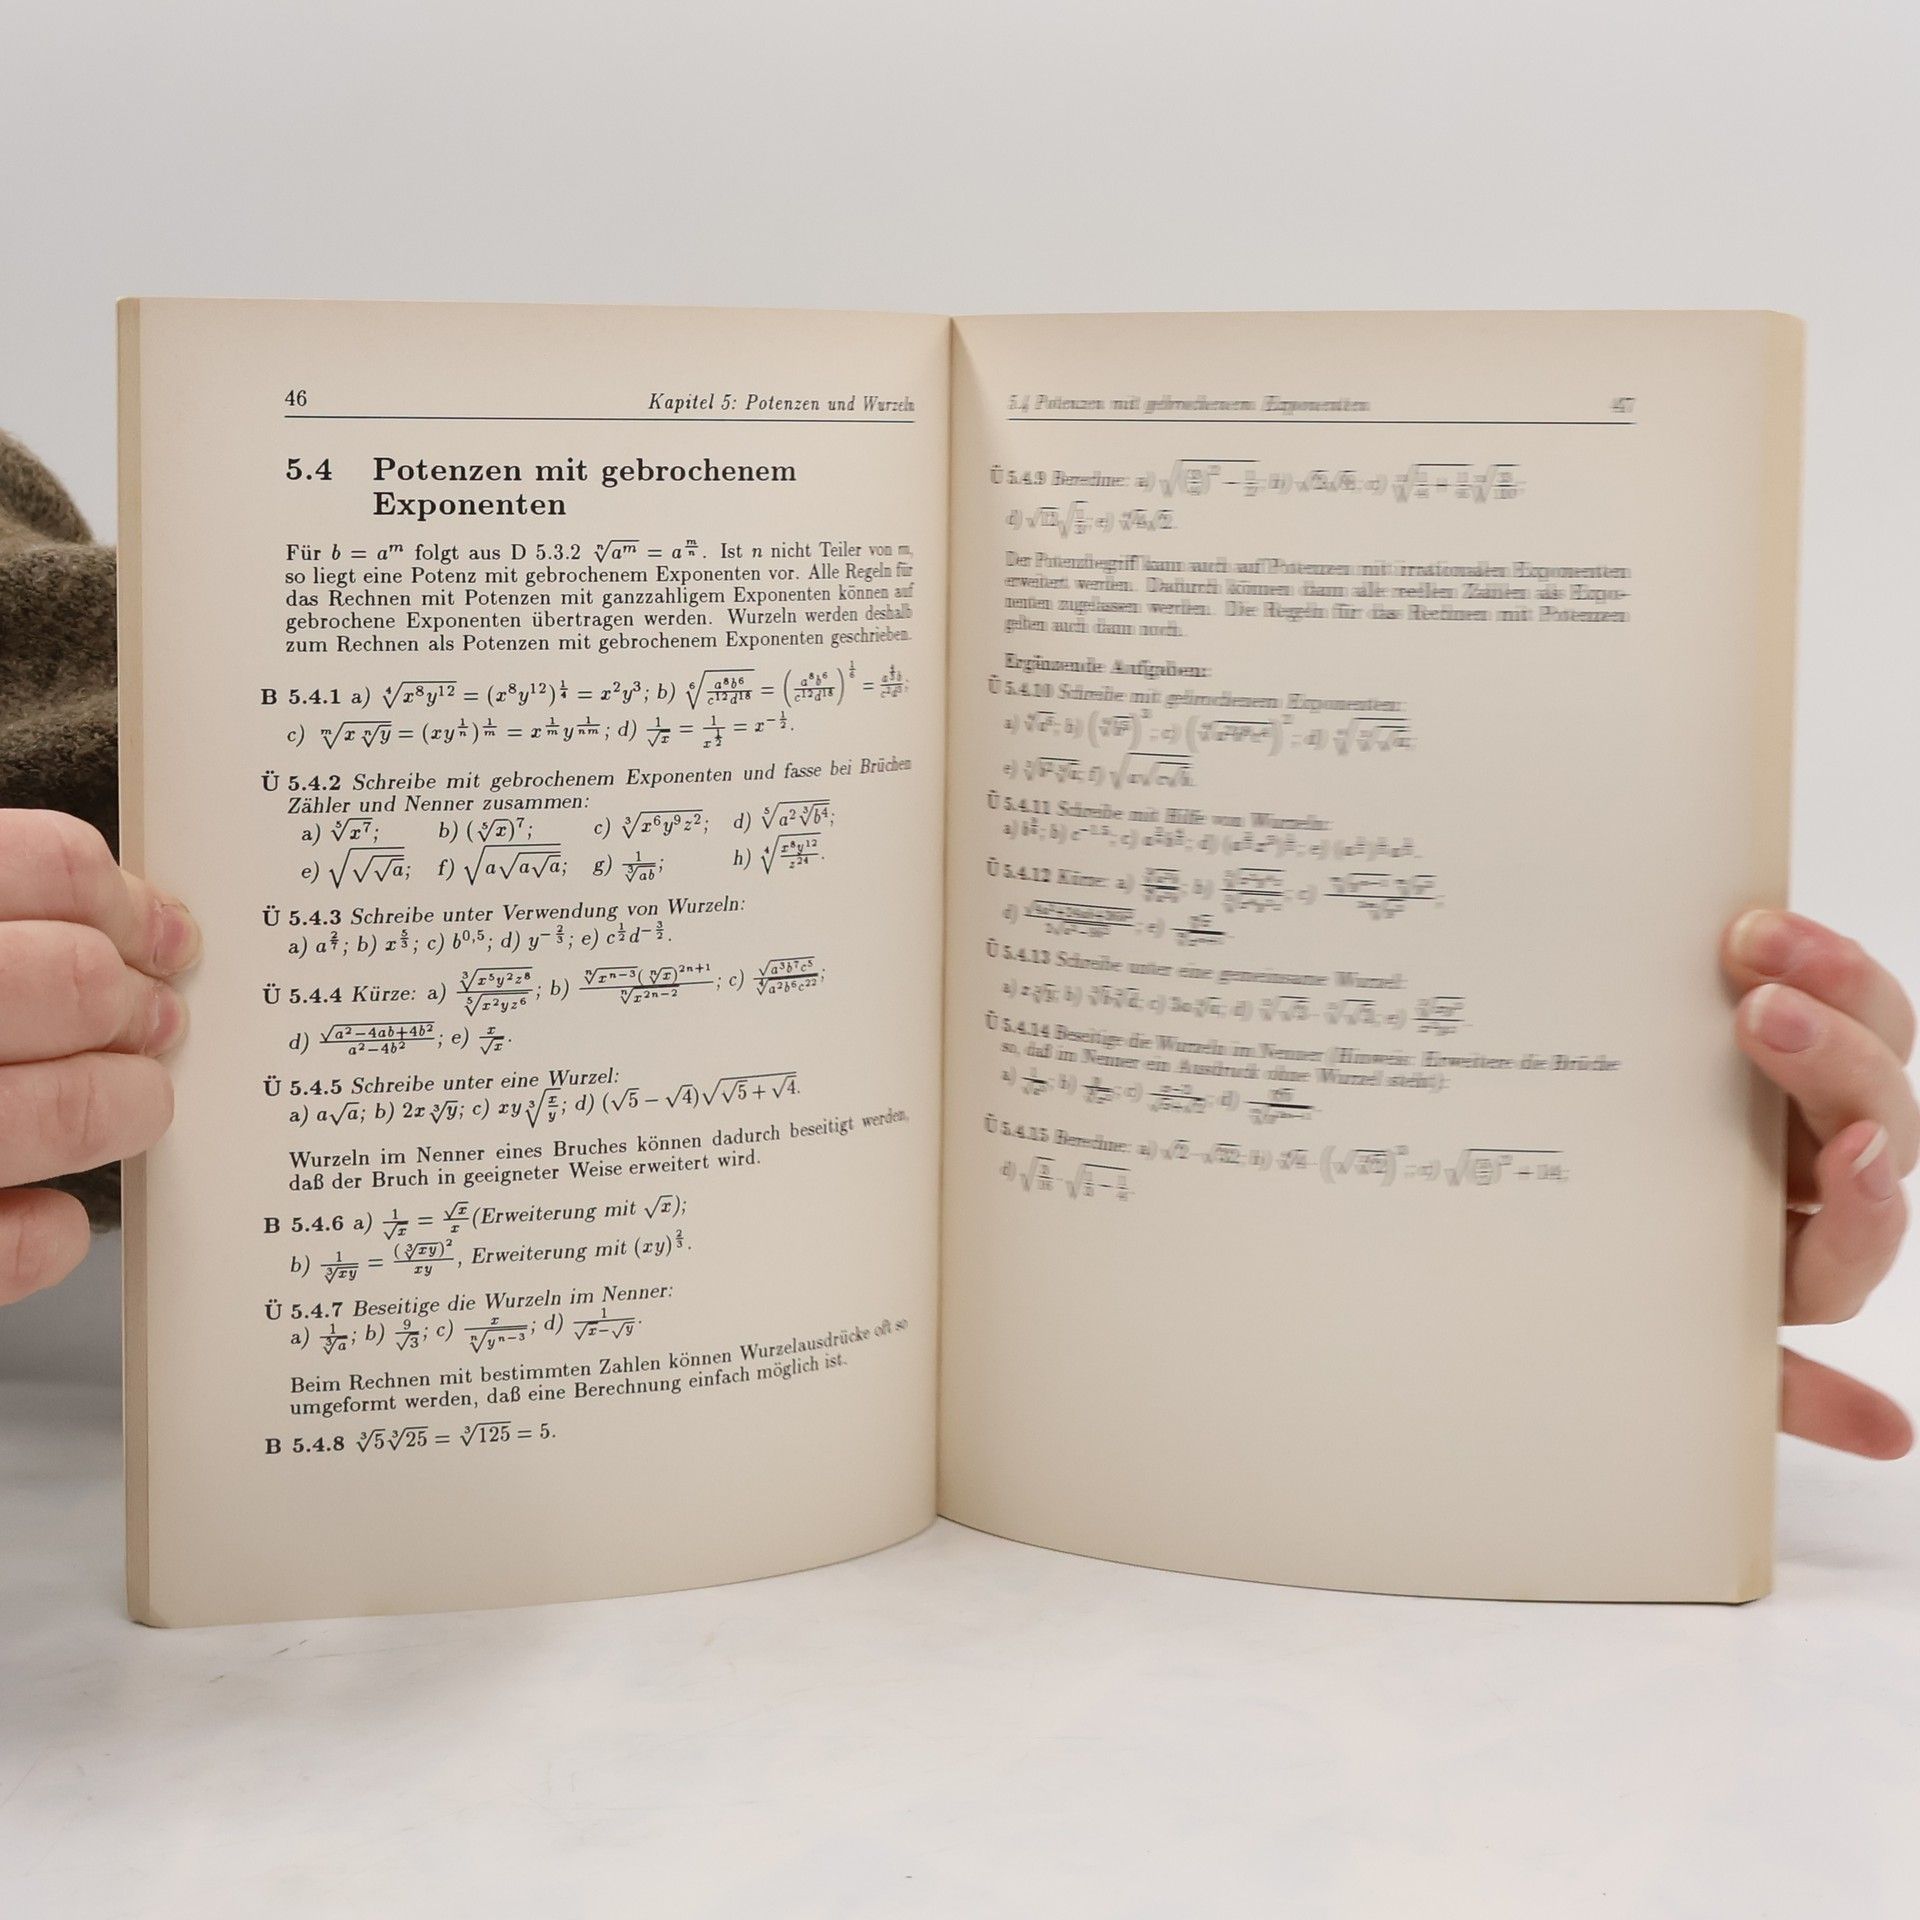 46 Kapitel 5: Potenzen und Wurzeln
5.4 Potenzen mit gebrochenem
Exponenten
Für b = a^m folgt aus D 5.3.2 ⁿ√(a^m) = a^(m/n). Ist n nicht Teiler von m,
so liegt eine Potenz mit gebrochenem Exponenten vor. Alle Regeln für
das Rechnen mit Potenzen mit ganzzahligem Exponenten können auf
gebrochene Exponenten übertragen werden. Wurzeln werden deshalb
zum Rechnen als Potenzen mit gebrochenem Exponenten geschrieben.
B 5.4.1 a) ⁴√(x⁸y¹²) = (x⁸y¹²)^(1/4) = x²y³; b) ⁶√(a⁸b⁶/(c¹²d¹⁸)) = (a⁸b⁶/(c¹²d¹⁸))^(1/6) = a^(4/3)b/(c²d³);
c) ᵐ√(x ⁿ√y) = (xy^(1/n))^(1/m) = x^(1/m) y^(1/nm); d) 1/√x = 1/x^(1/2) = x^(-1/2).
Ü 5.4.2 Schreibe mit gebrochenem Exponenten und fasse bei Brüchen
Zähler und Nenner zusammen:
a) ⁵√(x⁷); b) (⁵√x)⁷; c) ³√(x⁶y⁹z²); d) ⁵√(a² ³√(b⁴));
e) √(√(√a)); f) √(a√(a√a)); g) 1/³√(ab); h) ⁴√(x⁸y¹²/z²⁴).
Ü 5.4.3 Schreibe unter Verwendung von Wurzeln:
a) a^(2/7); b) x^(5/3); c) b^(0,5); d) y^(-2/3); e) c^(1/2)d^(-3/2).
Ü 5.4.4 Kürze: a) ³√(x⁵y²z⁸)/⁵√(x²yz⁶); b) ⁿ√(x^(n-3))(ⁿ√x)^(2n+1)/ⁿ√(x^(2n-2)); c) √(a³b⁷c⁵)/⁴√(a²b⁶c²²);
d) √(a²-4ab+4b²)/(a²-4b²); e) x/√x.
Ü 5.4.5 Schreibe unter eine Wurzel:
a) a√a; b) 2x ³√y; c) xy ³√(x/y); d) (√5 − √4)√(√5 + √4).
Wurzeln im Nenner eines Bruches können dadurch beseitigt werden,
daß der Bruch in geeigneter Weise erweitert wird.
B 5.4.6 a) 1/√x = √x/x (Erweiterung mit √x);
b) 1/³√(xy) = (³√(xy))²/(xy), Erweiterung mit (xy)^(2/3).
Ü 5.4.7 Beseitige die Wurzeln im Nenner:
a) 1/³√a; b) 9/√3; c) x/ⁿ√(y^(n-3)); d) 1/(√x-√y).
Beim Rechnen mit bestimmten Zahlen können Wurzelausdrücke oft so
umgeformt werden, daß eine Berechnung einfach möglich ist.
B 5.4.8 ³√5 ³√25 = ³√125 = 5.
5.4 Potenzen mit gebrochenem Exponenten 47
Ü 5.4.9 Berechne:
Der Potenzbegriff kann auch auf Potenzen mit irrationalen Exponenten
erweitert werden. Dadurch können dann alle reellen Zahlen als Expo-
nenten zugelassen werden. Die Regeln für das Rechnen mit Potenzen
gelten auch dann noch.
Ergänzende Aufgaben:
Ü 5.4.10 Schreibe mit gebrochenem Exponenten:
Ü 5.4.11 Schreibe mit Hilfe von Wurzeln:
Ü 5.4.12 Kürze:
Ü 5.4.13 Schreibe unter eine gemeinsame Wurzel:
Ü 5.4.14 Beseitige die Wurzeln im Nenner (Hinweis: Erweitere die Brüche
so, daß im Nenner ein Ausdruck ohne Wurzel steht):
Ü 5.4.15 Berechne: